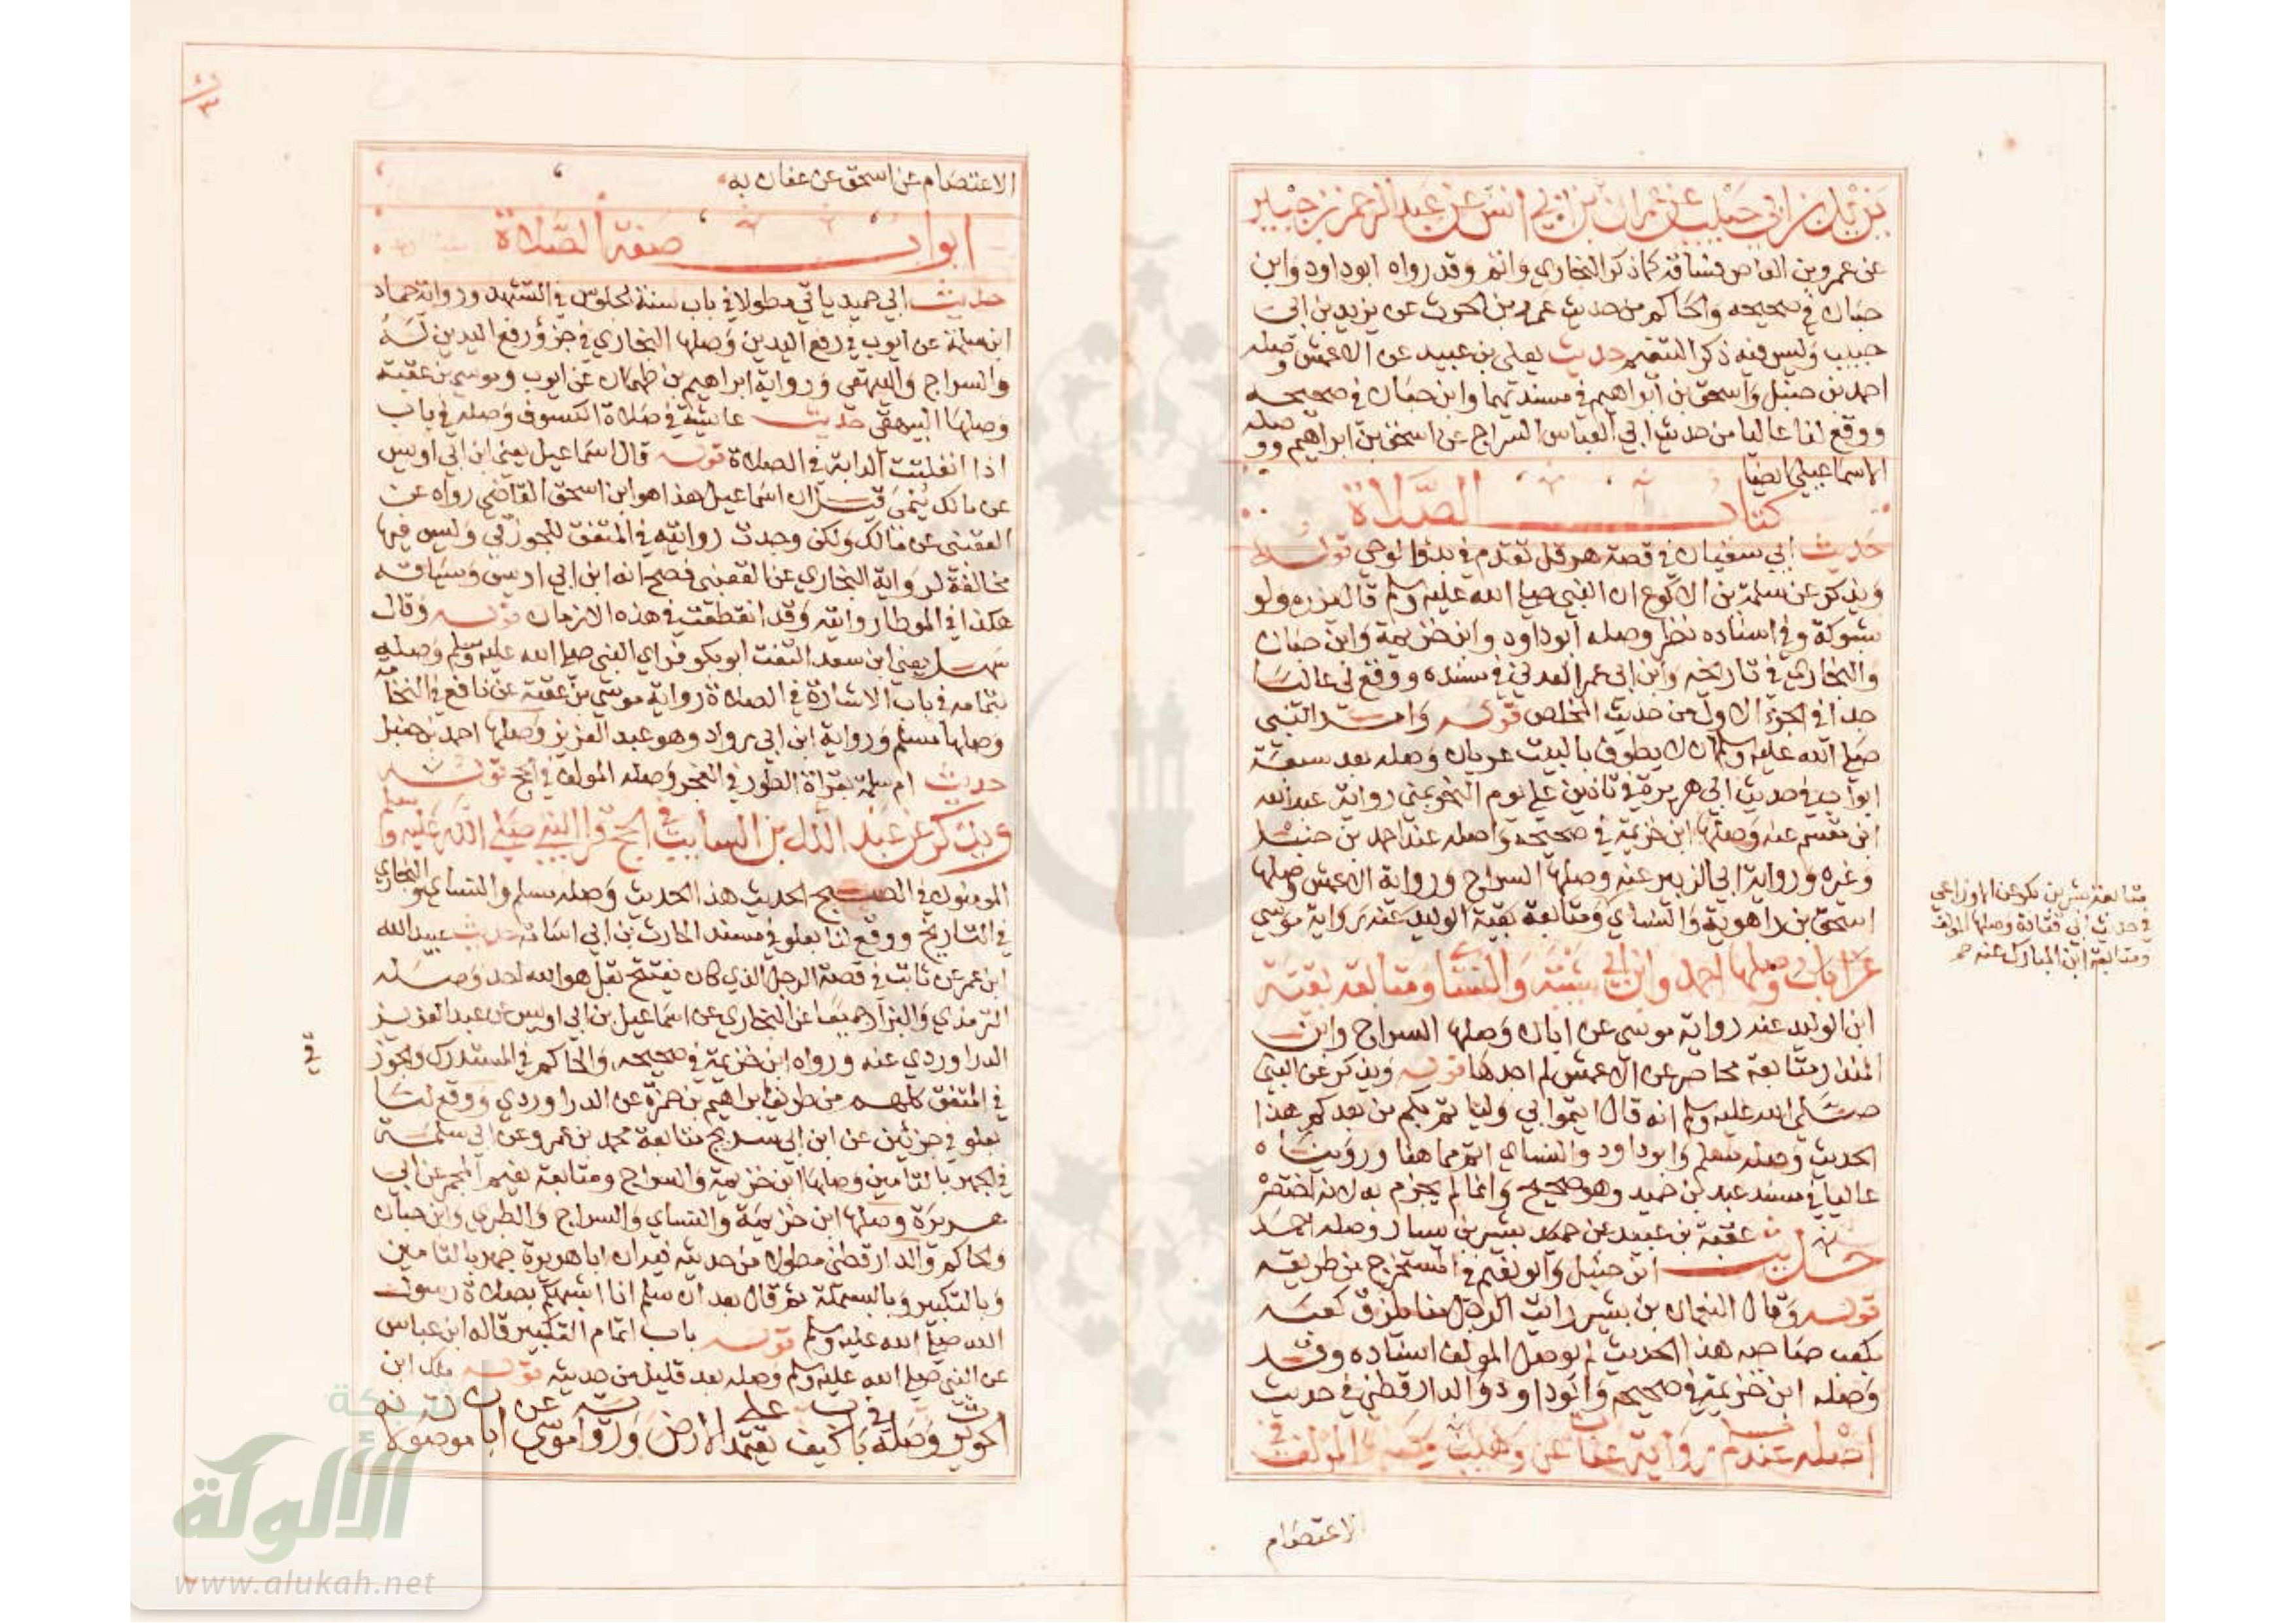 يزيد بن أبي حبيب عن عمران بن أبي أنس عن عبد الرحمن بن جبير
عن عمرو بن العاص فساقه كما ذكر البخاري واتم وقد رواه ابو داود وابن
حبان في صحيحه والحاكم من حديث عمرو بن الحرث عن يزيد بن ابي
حبيب وليس فيه ذكر التيمم حديث يعلى بن عبيد عن الاعمش وصله
احمد بن حنبل واسحق بن ابراهيم في مسنديهما وابن حبان في صحيحه
ووقع لنا عاليا من حديث ابي العباس السراج عن اسحق بن ابراهيم ووصله
الاسماعيلي ايضا
كتاب الصلاة
حديث ابي سفيان في قصة هرقل تقدم في بدؤ الوحي قوله
ويذكر عن سلمة بن الاكوع ان النبي صلى الله عليه وسلم قال يزره ولو
بشوكة وفي اسناده نظر وصله ابو داود وابن خزيمة وابن حبان
والبخاري في تاريخه وابن ابي عمر العدني في مسنده ووقع لي عاليا
جدا في الجزء الاول من حديث المخلص قوله وامر النبي
صلى الله عليه وسلم ان لا يطوف بالبيت عريان وصله بعد سبعة
ابواب في حديث ابي هريرة في تاذين علي يوم النحر بمنى رواية عبد الله
ابن مقسم عنه وصلها ابن خزيمة في صحيحه واصله عند احمد بن حنبل
وغيره ورواية ابي الزبير عنه وصلها السراج ورواية الاعمش وصلها
اسحق بن راهوية والنساي ومتابعة بقية الوليد عنه برواية موسى
عن ابان وصلها احمد وابن ابي شيبة والنسا ومتابعة بقية
ابن الوليد عنه رواية موسى عن ابان وصلها السراج وابن
المنذر ومتابعة محاضر عن الاعمش لم اجدها قوله ويذكر عن النبي
صلى الله عليه وسلم انه قال ائتموا بي وليا تم بكم من بعدكم هذا
الحديث وصله مسلم وابو داود والنساي اتم مما هنا ورويناه
عاليا في مسند عبد بن حميد وهو صحيح وانما لم يجزم به لانه اختصر
حديث عقبة بن عبيد عن بشير بن يسار وصله احمد
ابن حنبل وابو نعيم في المستخرج من طريقه
قوله وقال النعمان بن بشير رايت الرجل منا يلزق كعبه
بكعب صاحبه هذا الحديث لم يوصل المولف اسناده وقد
وصله ابن خزيمة في صحيحه وابو داود والدارقطني في حديث
اصله تقدم رواية عفان عن وهيب وصلها المولف في
الاعتصام
متابعة بشر بن بكر عن الاوزاعي
في حديث ابي قتادة وصلها المولف
ومتابعة ابن المبارك عنه
الاعتصام عن اسحق عن عفان به
ابواب صفة الصلاة
حديث ابي حميد ياتي مطولا في باب سنة الجلوس في التشهد ورواية حماد
ابن سلمة عن ايوب في رفع اليدين وصلها البخاري في جزؤ رفع اليدين له
والسراج والبيهقي ورواية ابراهيم بن طهمان عن ايوب وموسى بن عقبة
وصلها البيهقي حديث عايشة في صلاة الكسوف وصله في باب
اذا انفلتت الدابة في الصلاة قوله قال اسماعيل يعني ابن ابي اويس
عن مالك ينمى قيل ان اسماعيل هذا هو ابن اسحق القاضي رواه عن
القعنبي عن مالك ولكن وجدت روايته في المتفق للجوزقي وليس فيها
مخالفة لرواية البخاري عن القعنبي فصح انه ابن ابي اويس وسياقه
هكذا في الموطا روايته وقد انقطعت في هذه الازمان قوله وقال
سهل يعني ابن سعد التفت ابو بكر فراي النبي صلى الله عليه وسلم وصله
بتمامه في باب الاشارة في الصلاة رواية موسى بن عقبة عن نافع في النخامة
وصلها مسلم ورواية ابن ابي رواد وهو عبد العزيز وصلها احمد بن حنبل
حديث ام سلمة بقراة الطور في الفجر وصله المولف في الحج قوله
ويذكر عن عبد الله بن السايب في الحج قرا النبي صلى الله عليه وسلم
المومنون في الصبح الحديث هذا الحديث وصله مسلم والنساي والبخاري
في التاريخ ووقع لنا بعلو في مسند الحارث بن ابي اسامة حديث عبيد الله
ابن عمر عن ثابت في قصة الرجل الذي كان يفتتح بقل هو الله احد وصله
الترمذي والبزار جميعا عن البخاري عن اسماعيل بن ابي اويس عن عبد العزيز
الدراوردي عنه ورواه ابن خزيمة في صحيحه والحاكم في المستدرك والجوز
في المتفق كلهم من طريق ابراهيم بن حمزة عن الدراوردي ووقع لنا
بعلو في جزئين عن ابن ابي شريح متابعة محمد بن عمرو عن ابي سلمة
في الجهر بالتامين وصلها ابن خزيمة والسراج ومتابعة نعيم المجمر عن ابي
هريرة وصلها ابن خزيمة والنساي والسراج والطبري وابن حبان
والحاكم والدارقطني مطولا من حديثه فيه ان ابا هريرة جهر بالتامين
وبالتكبير وبالبسملة ثم قال بعد ان سلم انا اشبهكم بصلاة رسول
الله صلى الله عليه وسلم قوله باب اتمام التكبير قاله ابن عباس
عن النبي صلى الله عليه وسلم وصله بعد قليل من حديثه قوله ملك ابن
الحويرث وصله في باب كيف يعتمد على الارض ورواية موسى عن ابان موصولة
شبكة
الألوكة
www.alukah.net